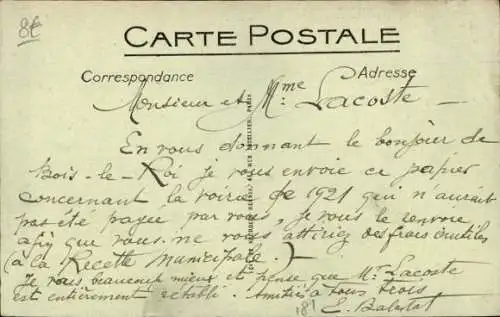 8€
CARTE POSTALE
Correspondance
Adresse
Monsieur et Mme Lacoste
En vous donnant le bonjour de
Bois-le-Roi je vous envoie ce papier
concernant la voirie de 1921 qui n'aurait
pas été payée par vous, je vous le renvoie
afin que vous ne vous attiriez des frais inutiles
(à la Recette Municipale.)
Je vous beaucoup mieux et pense que Mr Lacoste
est entièrement rétabli. Amitiés à tous trois
181